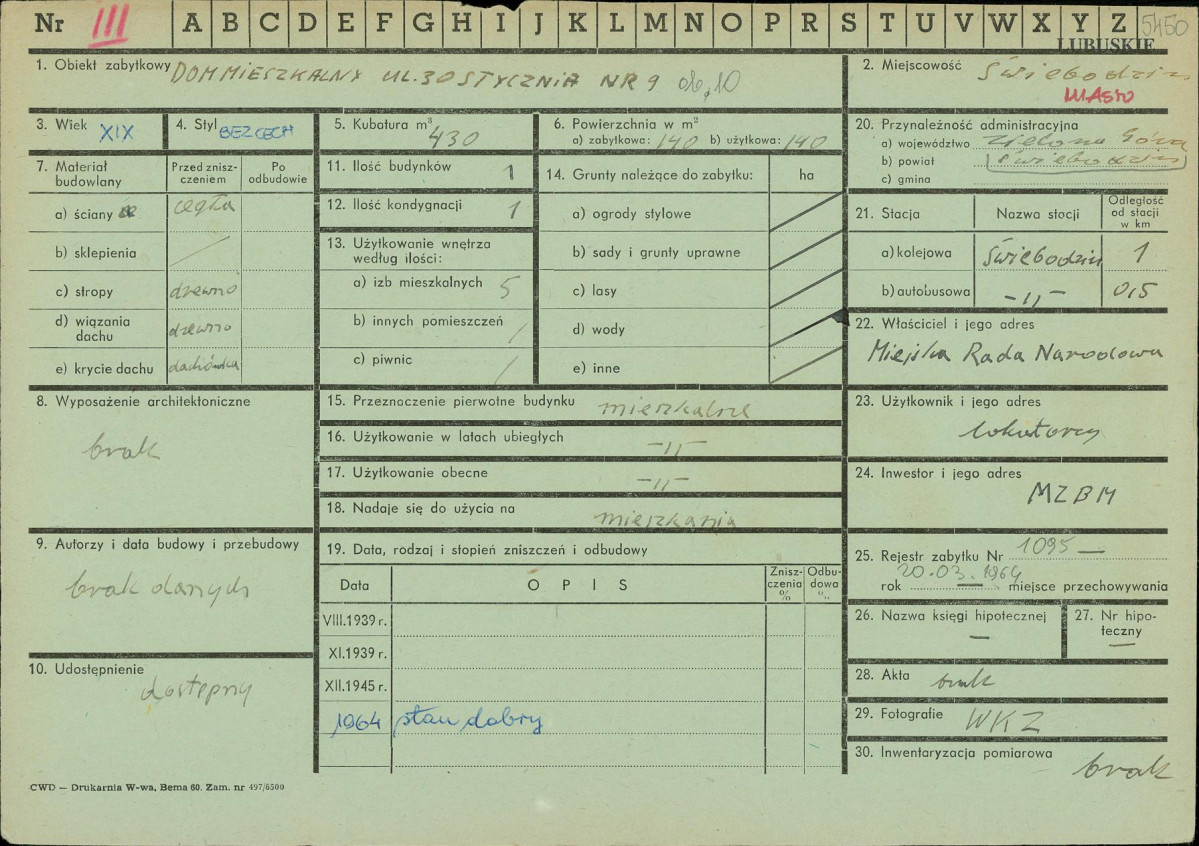 Nr III A B C D E F G H I J K L M N O P R S T U V W X Y Z 5450
LUBUSKIE
1. Obiekt zabytkowy DOM MIESZKALNY UL. 30 STYCZNIA NR 9 ob. 10
2. Miejscowość Świebodzin
MIASTO
3. Wiek XIX
4. Styl BEZ CECH
5. Kubatura m³
430
6. Powierzchnia w m²
a) zabytkowa: 140 b) użytkowa: 140
20. Przynależność administracyjna
a) województwo Zielona Góra
b) powiat Świebodzin
c) gmina
7. Materiał budowlany
Przed zniszczeniem
Po odbudowie
a) ściany cegła
b) sklepienia /
c) stropy drewno
d) wiązania dachu drewno
e) krycie dachu dachówka
11. Ilość budynków 1
12. Ilość kondygnacji 1
13. Użytkowanie wnętrza według ilości:
a) izb mieszkalnych 5
b) innych pomieszczeń /
c) piwnic /
14. Grunty należące do zabytku: ha
a) ogrody stylowe
b) sady i grunty uprawne
c) lasy
d) wody
e) inne
21. Stacja
Nazwa stacji
Odległość od stacji w km
a) kolejowa Świebodzin 1
b) autobusowa -"- 0,5
22. Właściciel i jego adres
Miejska Rada Narodowa
8. Wyposażenie architektoniczne
brak
15. Przeznaczenie pierwotne budynku mieszkalne
16. Użytkowanie w latach ubiegłych -"-
17. Użytkowanie obecne -"-
18. Nadaje się do użycia na mieszkania
23. Użytkownik i jego adres
lokatorzy
24. Inwestor i jego adres
MZBM
9. Autorzy i data budowy i przebudowy
brak danych
19. Data, rodzaj i stopień zniszczeń i odbudowy
Data
OPIS
Zniszczenia %
Odbudowa %
VIII.1939 r.
XI.1939 r.
XII.1945 r.
1964 stan dobry
25. Rejestr zabytku Nr 1095 —
rok 20.03.1964 miejsce przechowywania
26. Nazwa księgi hipotecznej
—
27. Nr hipoteczny
—
10. Udostępnienie
dostępny
28. Akta brak
29. Fotografie WKZ
30. Inwentaryzacja pomiarowa
brak
CWD — Drukarnia W-wa, Bema 60. Zam. nr 497/6500